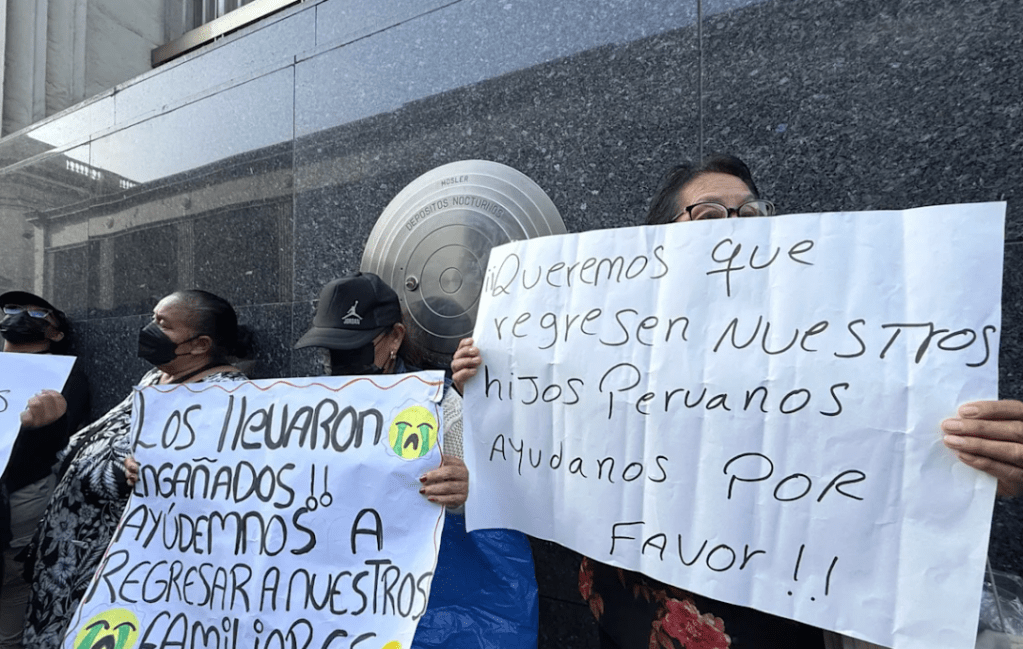 MOSLER
DEPOSITOS NOCTURNOS
¡¡Queremos que
regresen Nuestros
hijos Peruanos
Ayudanos POR
FAVOR!!
Los llevaron
engañados!!
AYÚDEMNOS A
REGRESAR A NUESTROS
FAMILIARES